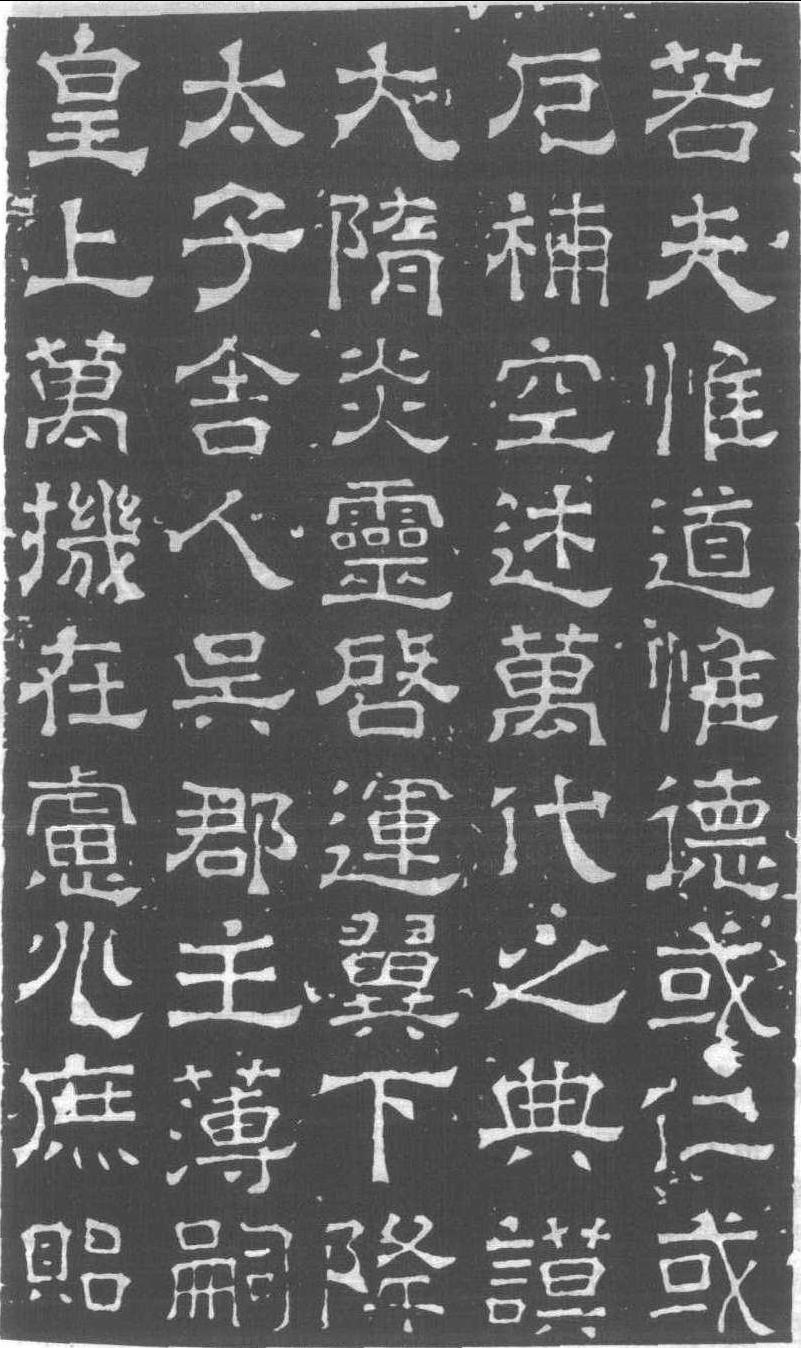 若夫惟道惟德或仁或
厄補空述萬代之典謨
大隋炎靈啓運翼下降
太子舍人吳郡主薄嗣
皇上萬機在慮兆庶貽